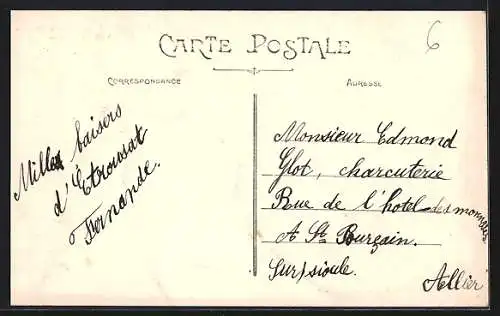 CARTE POSTALE
6
CORRESPONDANCE
ADRESSE
Mille baisers
d'Etroussat
Fernande.
Monsieur Edmond
Glot, charcuterie
Rue de l'hotel des monnaies
A St Pourçain.
Sur/sioule.
Allier